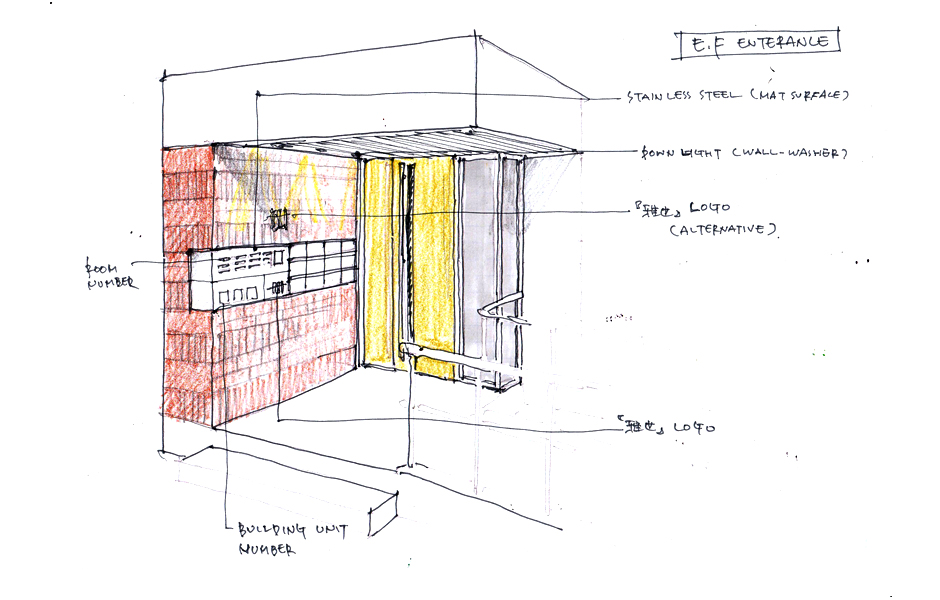 E.F ENTERANCE
STAINLESS STEEL (MAT SURFACE)
DOWN LIGHT (WALL-WASHER)
『雅世』 LOGO
(ALTERNATIVE)
ROOM
NUMBER
『雅世』 LOGO
BUILDING UNIT
NUMBER